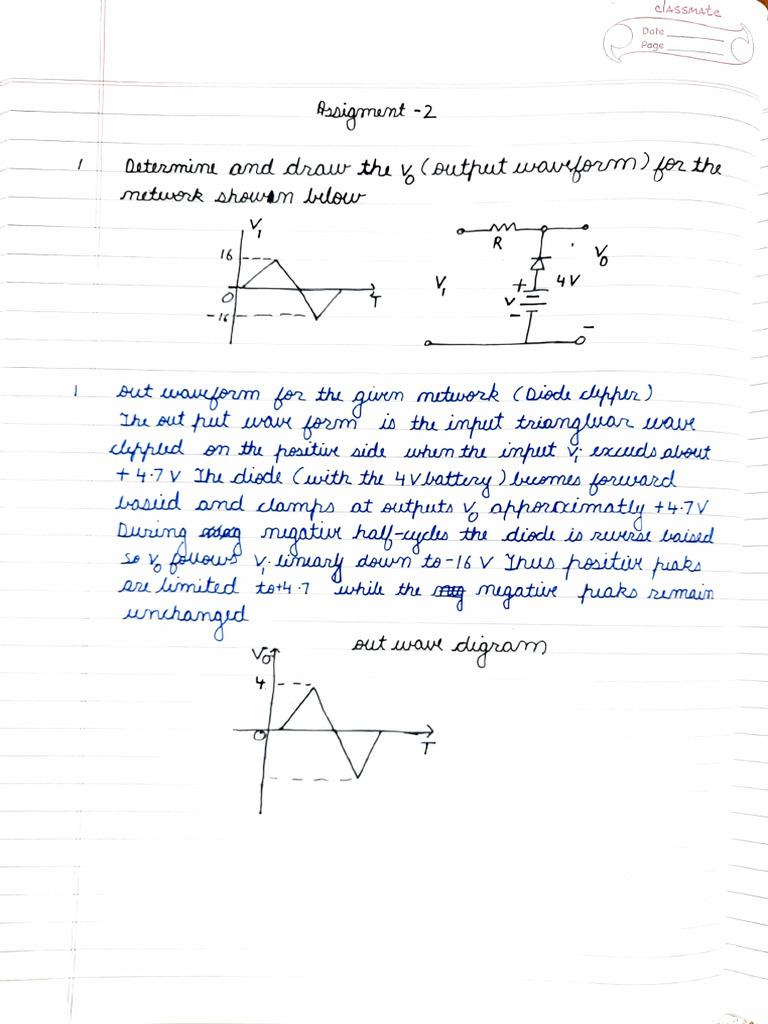 classmate
Date
Page
Assigment -2
1 Determine and draw the V0 (output waveform) for the
network shown below
V1
16
O
T
-16
R
V1
V0
+
4V
V
-
-
1 out waveform for the given network (Diode clipper)
The out put wave form is the input triangluar wave
clippled on the positive side when the input vi exceeds about
+ 4.7 V The diode (with the 4V battery) becomes forward
basied and clamps at outputs V0 apporoximatly +4.7V
During negative half-cycles the diode is reverse baised
so V0 follows Vi linearly down to -16 V Thus positive peaks
are limited to +4.7 while the negative peaks remain
unchanged
out wave digram
V0
4
O
T